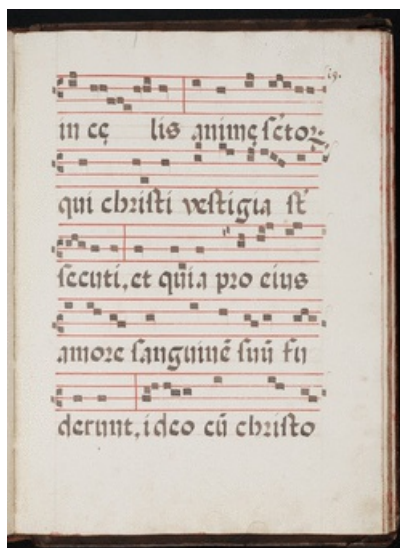 in cę lis animę sc̄toꝝ
qui christi vestigia st̄
secuti, et quia pro eius
amore sanguinē suū fu
derunt, ideo cū christo